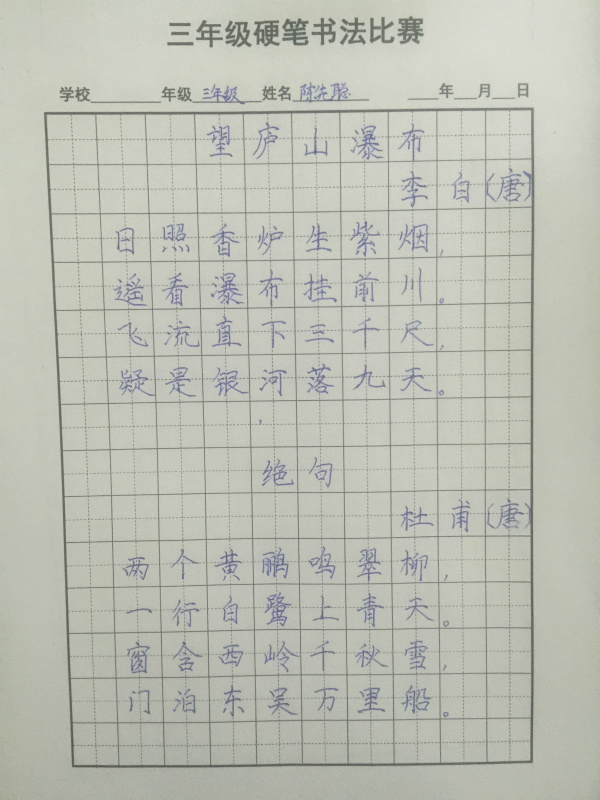 三年级硬笔书法比赛
学校________年级 三年级 姓名 陈先聪 ____年___月___日
望庐山瀑布
李白(唐)
日照香炉生紫烟,
遥看瀑布挂前川。
飞流直下三千尺,
疑是银河落九天。
绝句
杜甫(唐)
两个黄鹂鸣翠柳,
一行白鹭上青天。
窗含西岭千秋雪,
门泊东吴万里船。